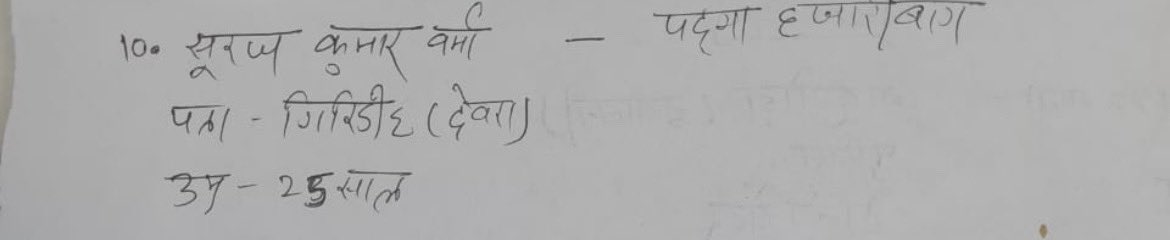 10. सूरज कुमार वर्मा - पदमा हजारीबाग
पता - गिरिडीह (देवरा)
उम्र - 25 साल